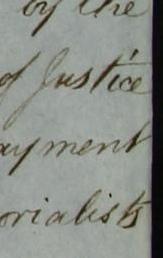 by the
of Justice
ayment
orialists